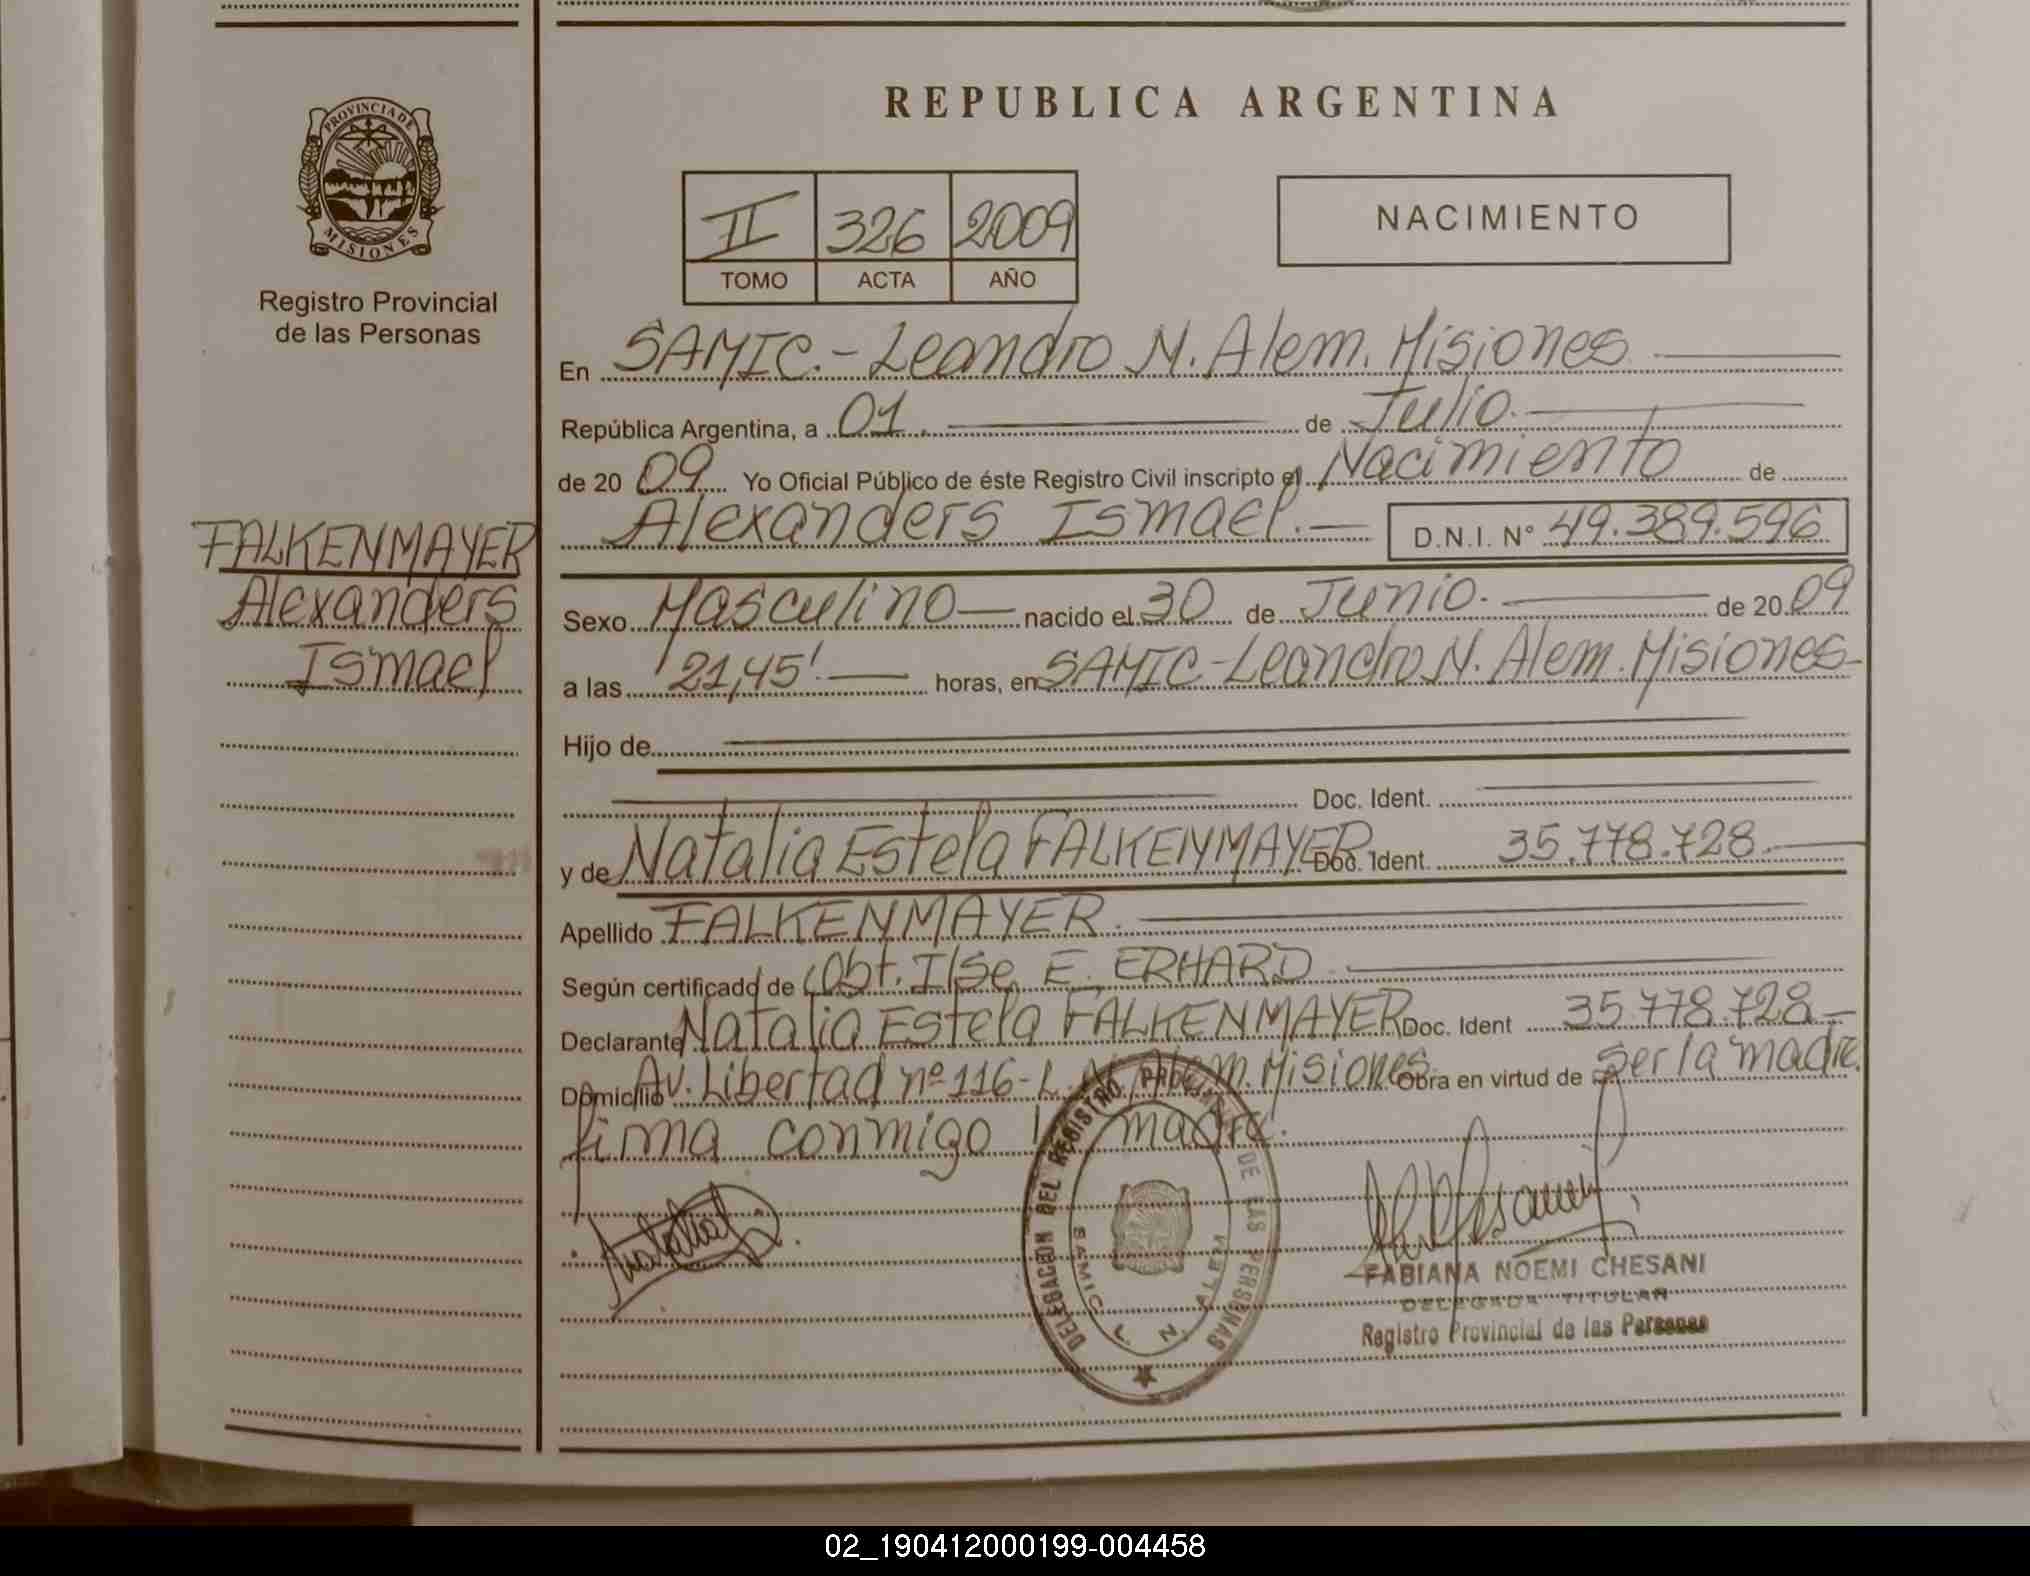 REPUBLICA ARGENTINA
PROVINCIA DE
MISIONES
Registro Provincial
de las Personas
II 326 2009
TOMO ACTA AÑO
NACIMIENTO
En SAMIC.- Leandro N. Alem. Misiones
República Argentina, a 01. de Julio.
de 20 09 Yo Oficial Público de éste Registro Civil inscripto el Nacimiento de
Alexanders Ismael. D.N.I. Nº 49.389.596
FALKENMAYER
Alexanders
Ismael
Sexo Masculino nacido el 30 de Junio. de 20 09
a las 21,45' horas, en SAMIC - Leandro N. Alem. Misiones
Hijo de
Doc. Ident.
y de Natalia Estela FALKENMAYER Doc. Ident. 35.778.728.
Apellido FALKENMAYER.
Según certificado de Obst. Ilse E. ERHARD
Declarante Natalia Estela FALKENMAYER Doc. Ident 35.778.728
Domicilio Av. Libertad nº 116 - L. N. Alem. Misiones Obra en virtud de ser la madre.
firma conmigo la madre.
DELEGACION DEL REGISTRO PROVINCIAL DE LAS PERSONAS
SAMIC L. N. ALEM
FABIANA NOEMI CHESANI
DELEGADA TITULAR
Registro Provincial de las Personas
02_190412000199-004458